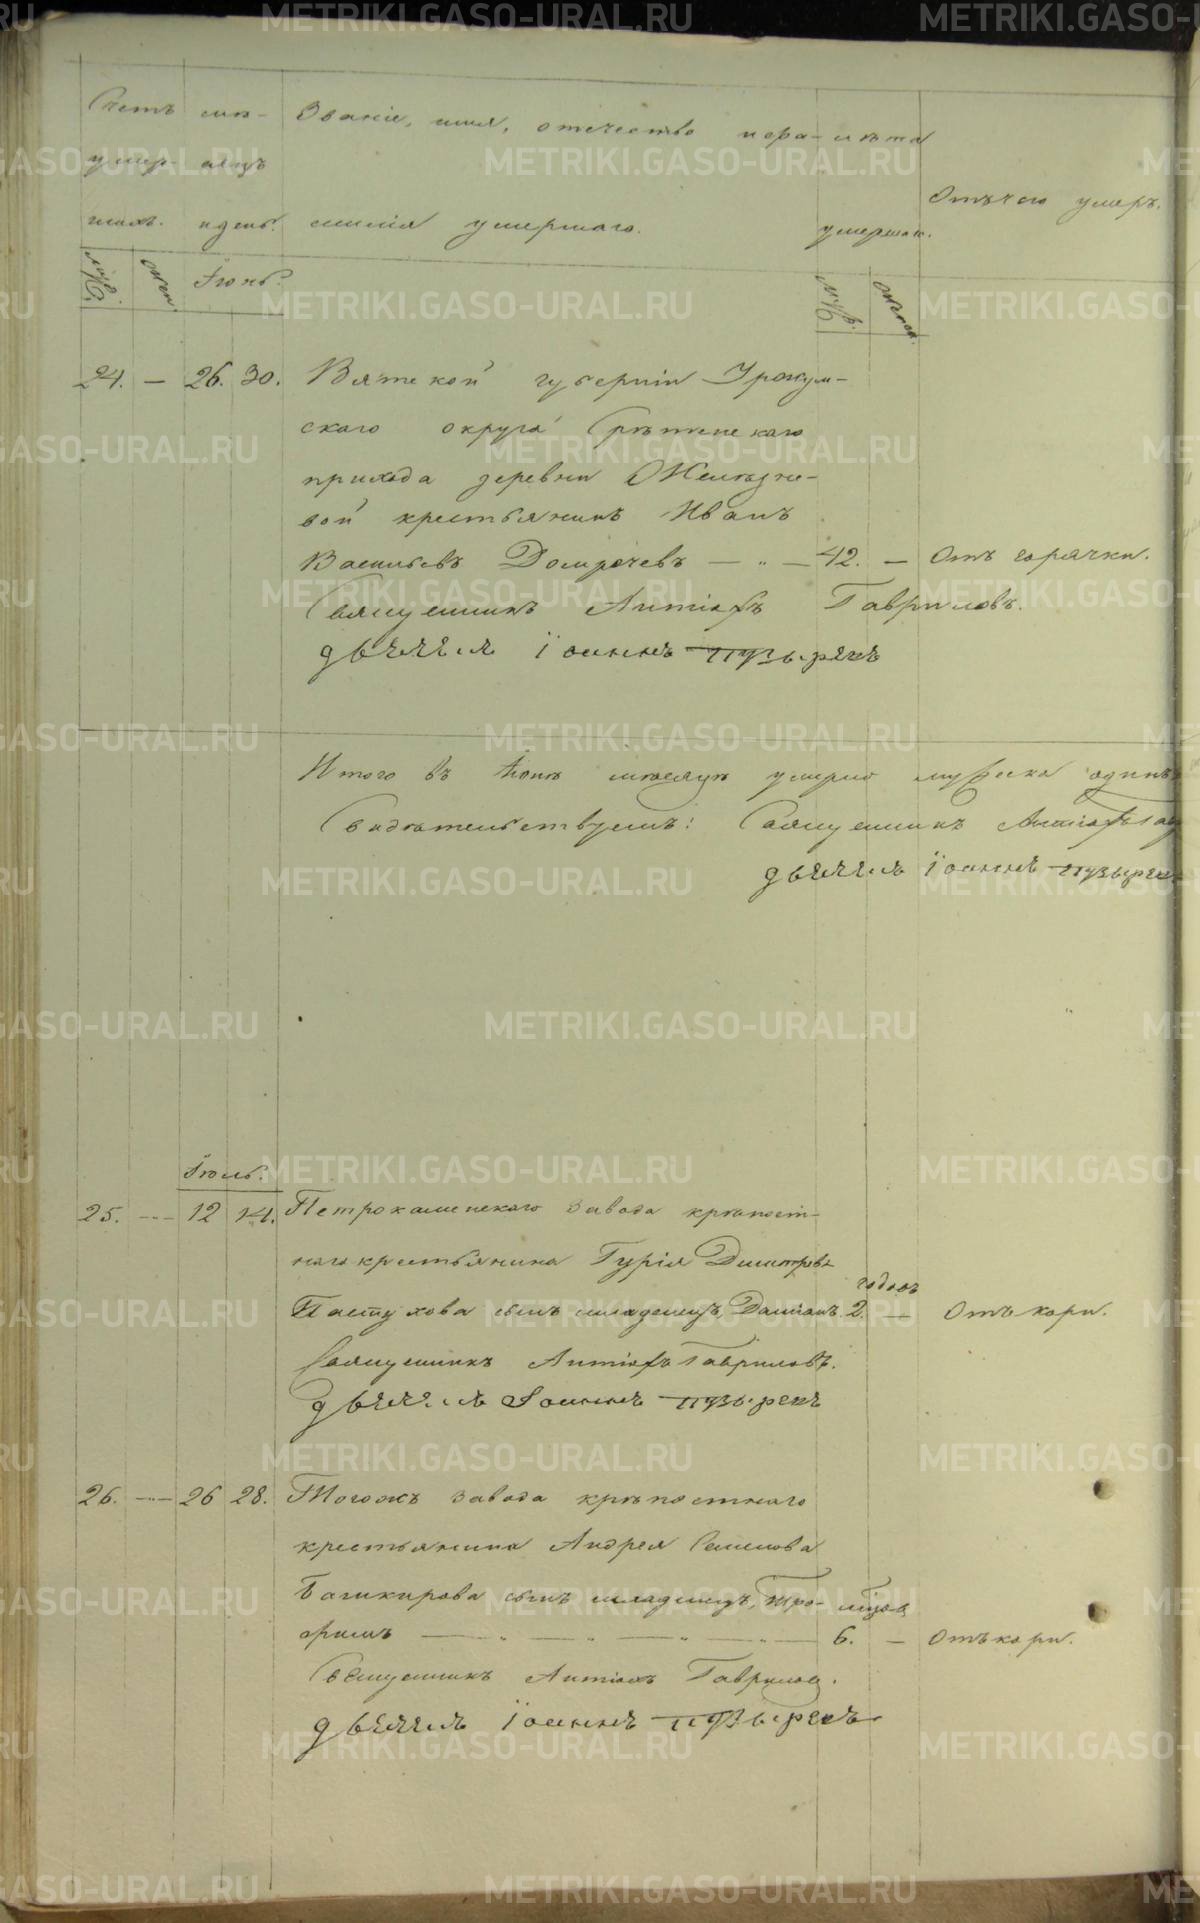 METRIKI.GASO-URAL.RU
Счетъ мѣ- Званіе, имя, отечество и фа- лѣта
умер- сяцъ
Отъ чего умеръ.
шихъ. и день. милія умершаго. умершаго.
муж. жен. Іюнь. муж. женск.
24. — 26. 30. Вятской губерніи Уржум-
скаго округа Срѣтенскаго
прихода деревни
вой крестьянинъ Иванъ
Васильевъ Домрачевъ — „ — 42. — Отъ горячки.
Священникъ Антіохъ Гавриловъ.
Дьячекъ Іоаннъ Пузыревъ
Итого въ Іюнѣ мѣсяцѣ умерло мужеска одинъ
Свидѣтельствуемъ: Священникъ Антіохъ Гав
Дьячекъ Іоаннъ Пузырев
Іюль.
25. — 12 14. Петрокаменскаго завода крѣпост-
наго крестьянина Гурія Димитріева
годовъ
Пастухова сынъ младенецъ, Даміанъ. 2. — Отъ кори.
Священникъ Антіохъ Гавриловъ.
Дьячекъ Іоаннъ Пузыревъ
26. — 26 28. Тогожъ завода крѣпостнаго
крестьянина Андрея Семенова
Башкирова сынъ младенецъ, Тро- мѣсяцов
фимъ — „ — „ — „ — 6. — Отъ кори.
Священникъ Антіохъ Гаврилов.
Дьячекъ Іоаннъ Пузыревъ